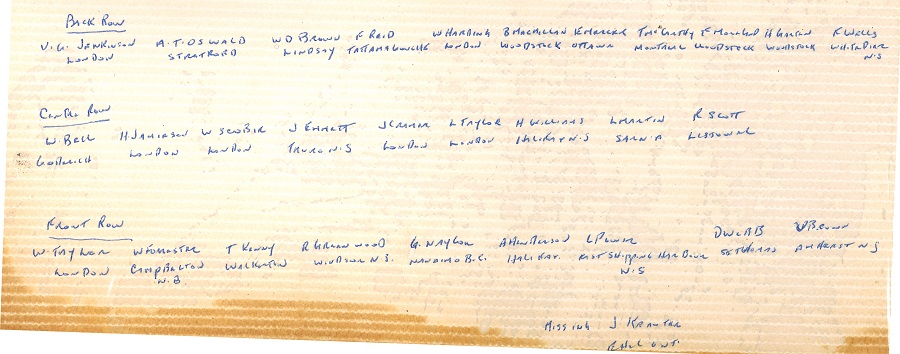 BACK ROW
V.G. JENKINSON A.T. OSWALD W D BROWN F REID W HARDING B MACMILLAN T McCARTHY H GARTON F WELLS
LONDON STRATFORD LINDSAY TATTAMAGOUCHE LONDON WOODSTOCK OTTAWA MONTREAL WOODSTOCK WOODSTOCK
N.S
CENTRE ROW
W. BELL H JAMIESON W SCOBIE J EMMETT J CRAMM L TAYLOR H WILLIAMS L MARTIN R SCOTT
GODERICH LONDON LONDON TRURO N.S LONDON LONDON HALIFAX N.S SARNIA LISTOWEL
FRONT ROW
W. TAYLOR T KENNY R GREENWOOD G. NAYLOR A HENDERSON L POWER D WEBB V BROWN
LONDON CAMPBELTON WALKERTON WINDSOR N.S. NANAIMO B.C. HALIFAX. EAST SHIPPING HARBOUR ST THOMAS AMHERST N S
N.B. N.S
MISSING J KRAMER
ONT.